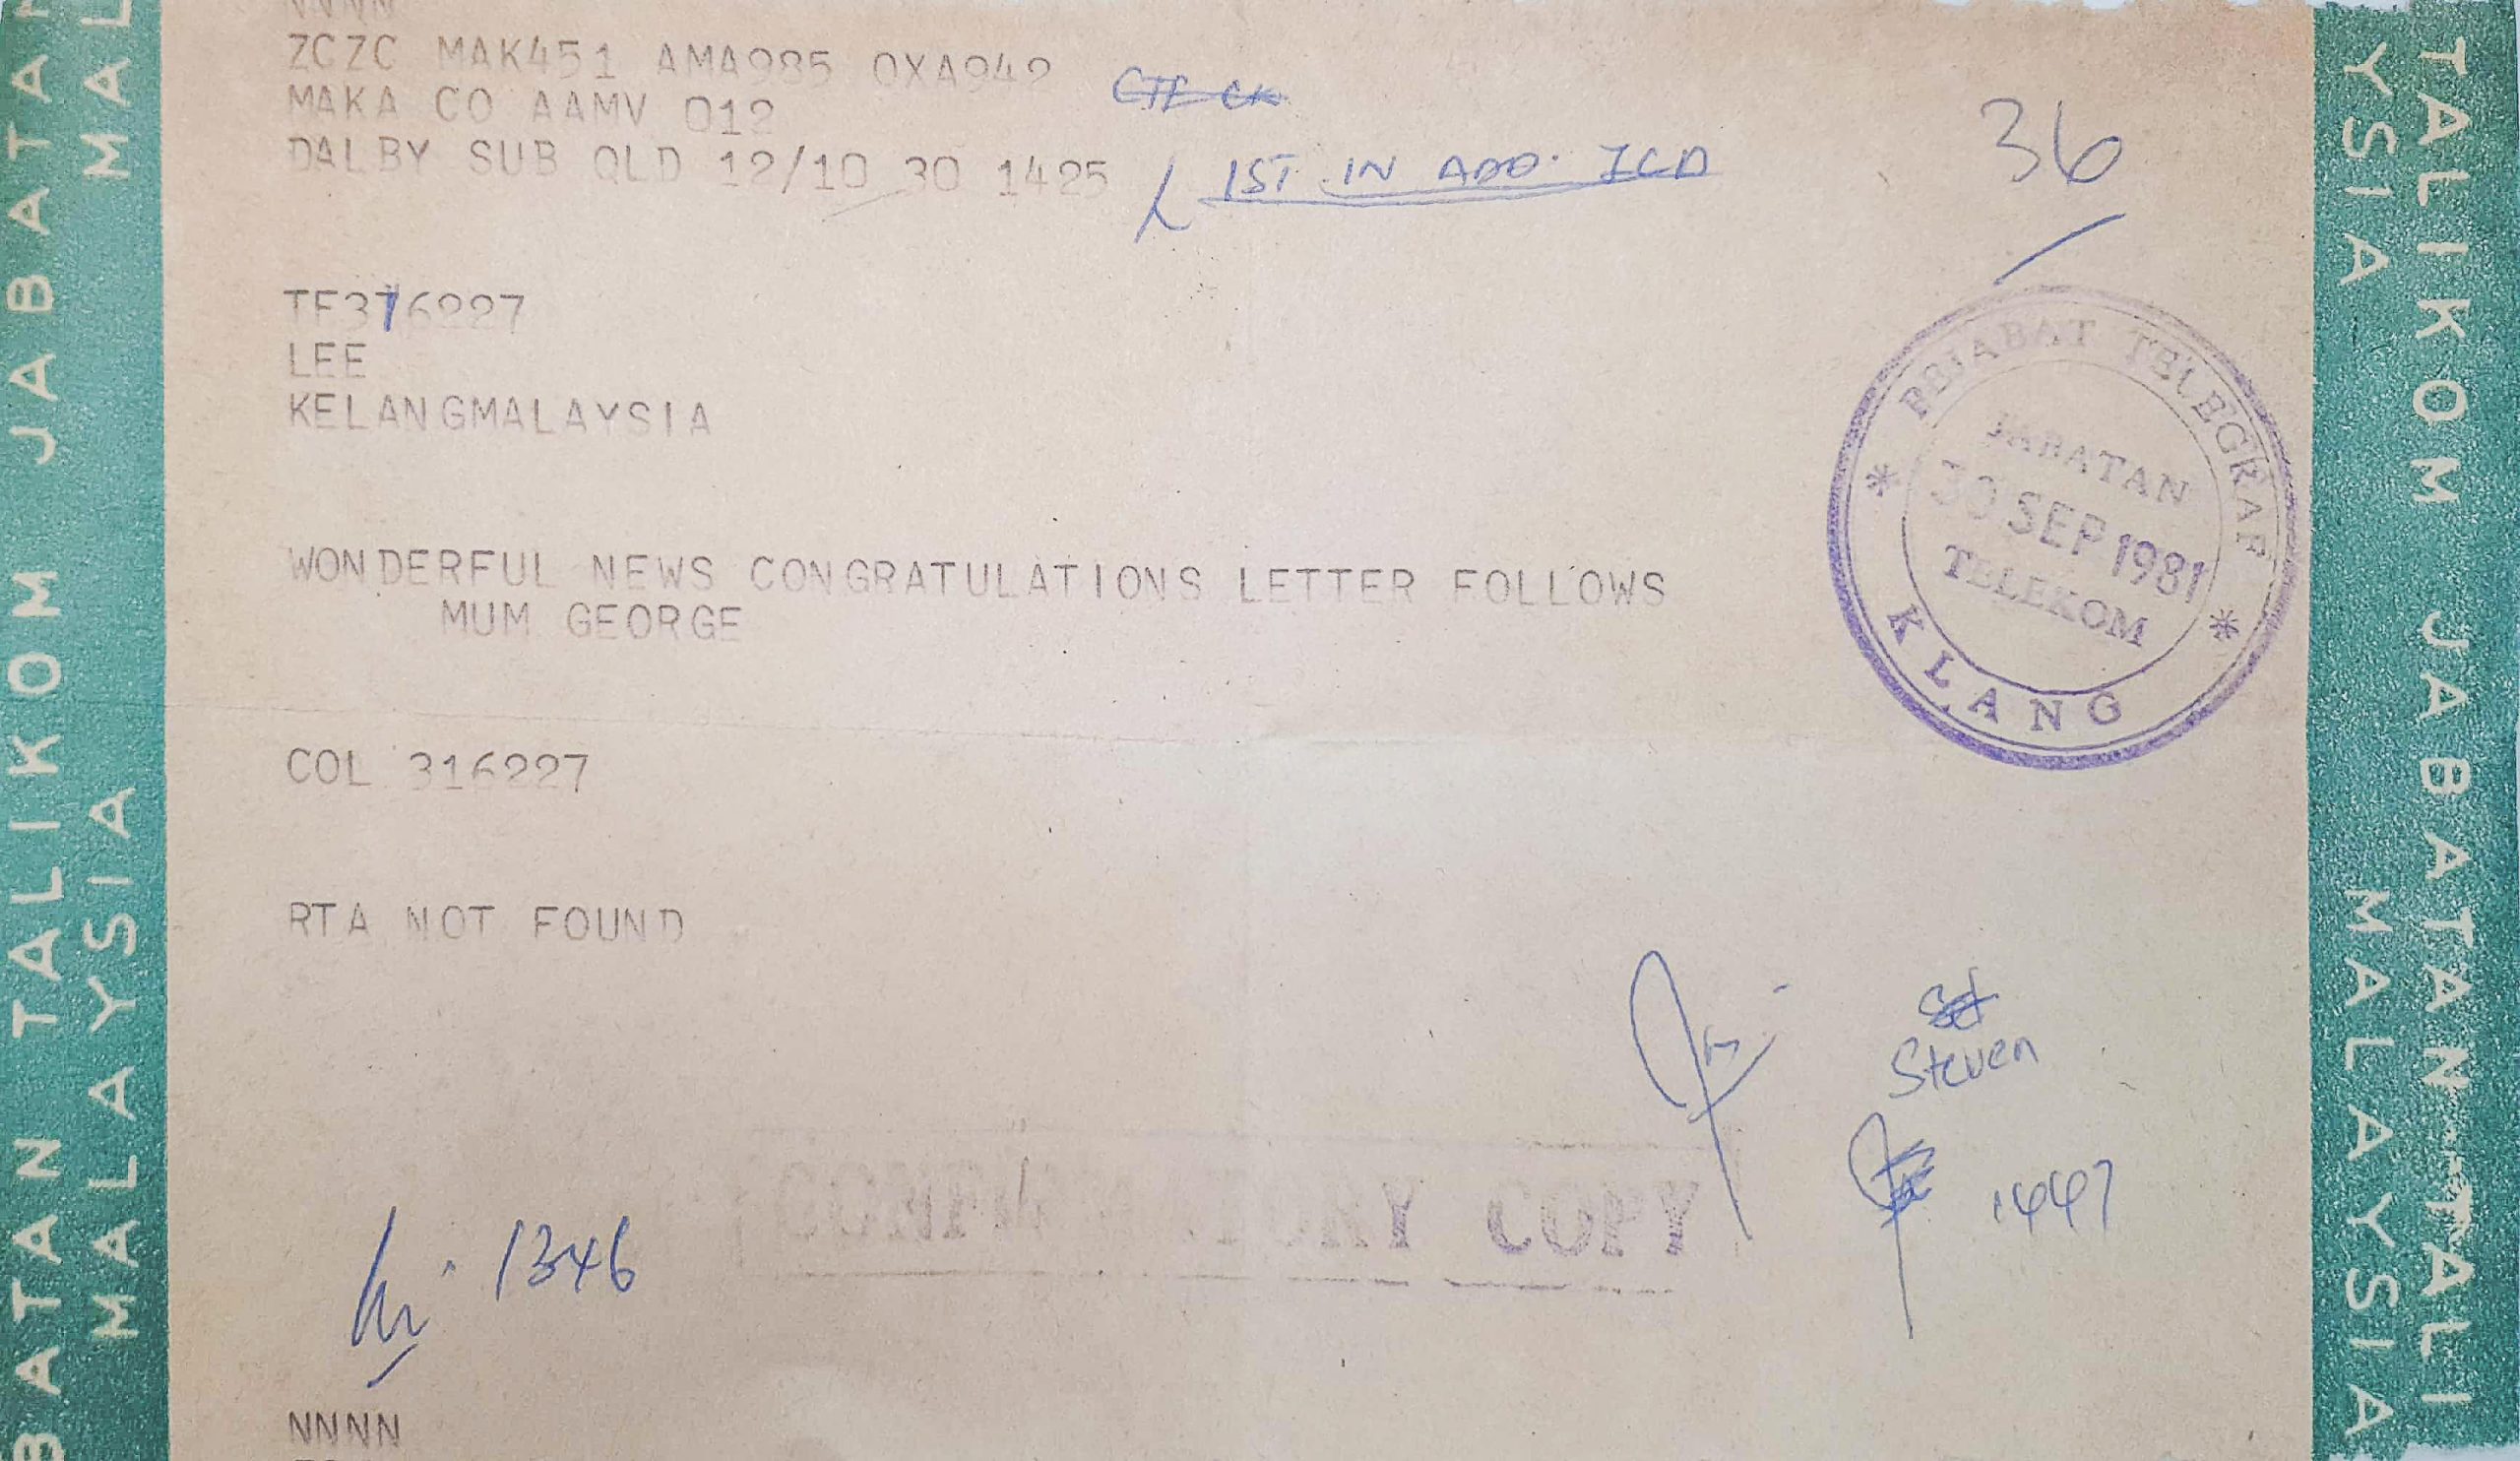 NNNN
ZCZC MAK451 AMA985 OXA942
MAKA CO AAMV 012
DALBY SUB QLD 12/10 30 1425
1ST IN ADD. ICD
36
TF316227
LEE
KELANGMALAYSIA
WONDERFUL NEWS CONGRATULATIONS LETTER FOLLOWS
MUM GEORGE
COL 316227
RTA NOT FOUND
PEJABAT TELEGRAF
JABATAN
30 SEP 1981
TELEKOM
* KLANG *
Steven
1447
CONFIRMATORY COPY
1346
NNNN
BATAN TALIKOM JABATAN
MALAYSIA MAL
TALIKOM JABATAN TALI
YSIA MALAYSIA